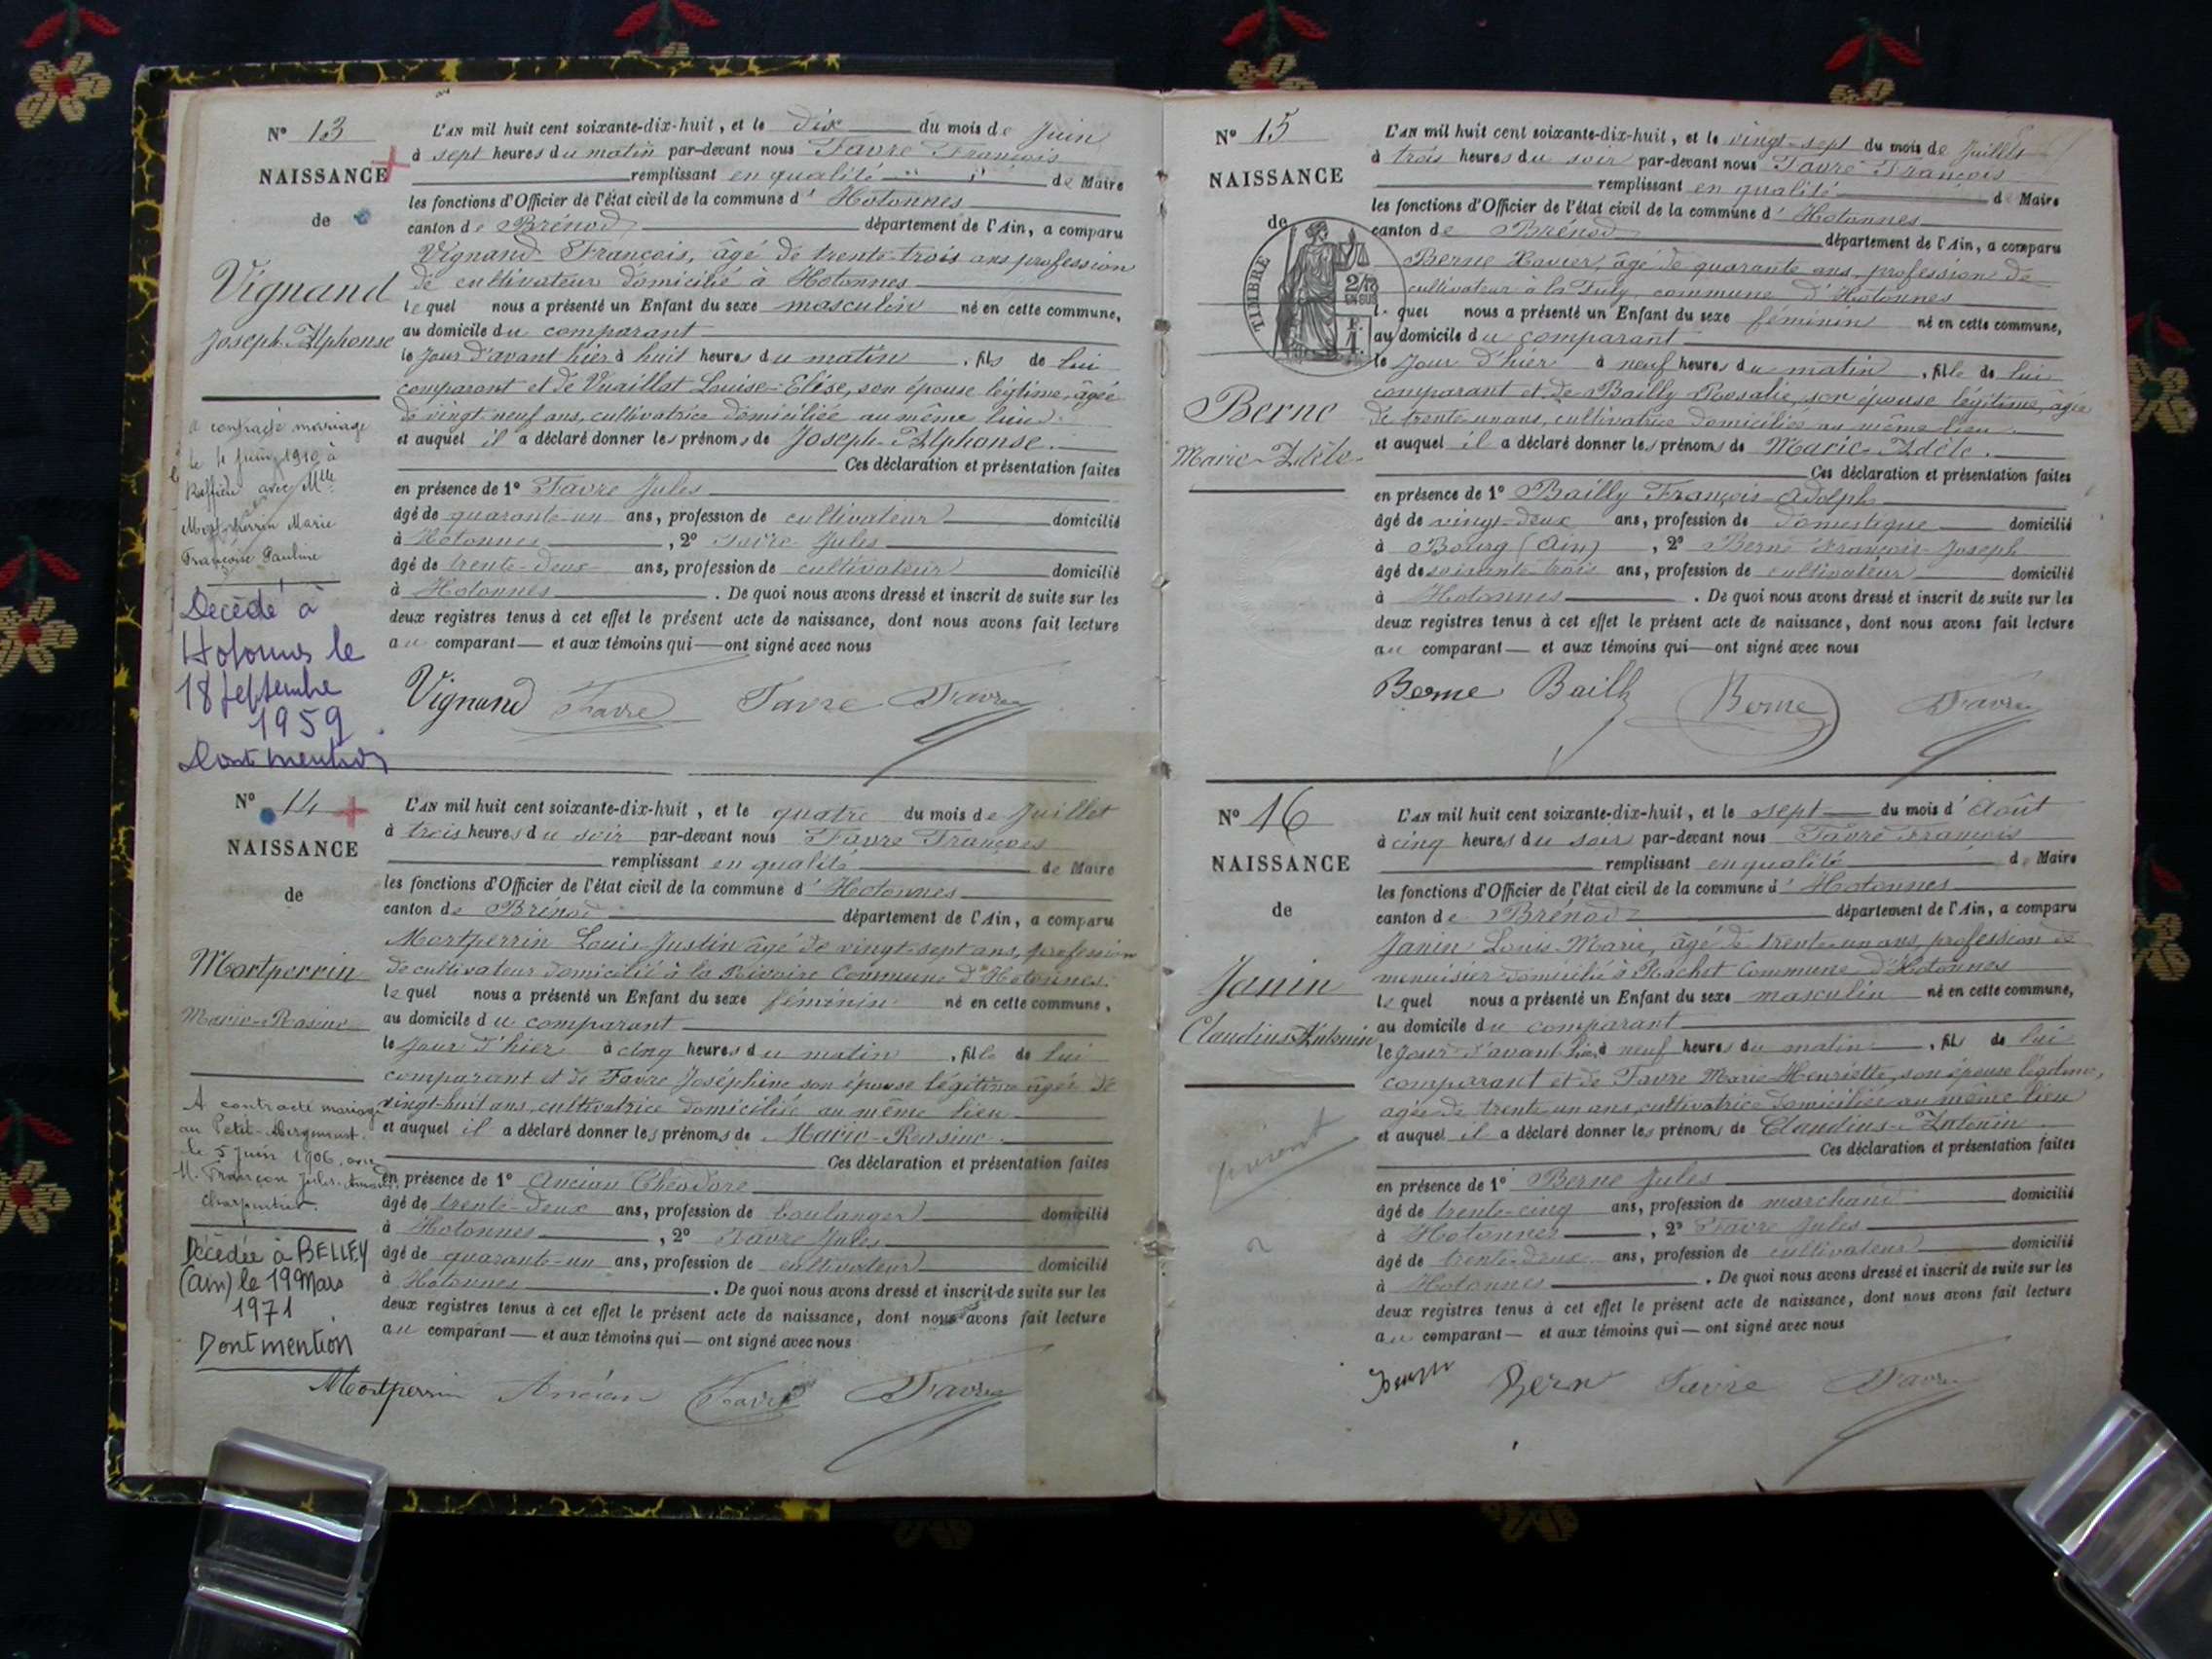 N° 13
NAISSANCE
de
Vignand
Joseph-Alphonse
A contracté mariage
le 4 Juin 1910 à
Ruffieu avec Mlle
Mortperrin Marie
Françoise Pauline
Décédé à
Hotonnes le
18 Septembre
1959
Dont mention
L'AN mil huit cent soixante-dix-huit, et le dix du mois de Juin
à sept heures du matin par-devant nous Favre François
remplissant en qualité de Maire
les fonctions d'Officier de l'état civil de la commune d' Hotonnes
canton de Brénod département de l'Ain, a comparu
Vignand François, âgé de trente-trois ans profession
de cultivateur domicilié à Hotonnes
lequel nous a présenté un Enfant du sexe masculin né en cette commune,
au domicile du comparant
le Jour d'avant hier à huit heures du matin, fils de lui
comparant et de Vuaillat Louise-Elise, son épouse légitime, âgée
de vingt-neuf ans, cultivatrice domiciliée au même lieu
et auquel il a déclaré donner les prénoms de Joseph-Alphonse.
Ces déclaration et présentation faites
en présence de 1° Favre Jules
âgé de quarante-un ans, profession de cultivateur domicilié
à Hotonnes, 2° Favre Jules
âgé de trente-deux ans, profession de cultivateur domicilié
à Hotonnes. De quoi nous avons dressé et inscrit de suite sur les
deux registres tenus à cet effet le présent acte de naissance, dont nous avons fait lecture
au comparant — et aux témoins qui — ont signé avec nous
Vignand Favre Favre Favre
N° 14
NAISSANCE
de
Mortperrin
Marie-Rosine
A contracté mariage
au Petit-Abergement
le 5 Juin 1906, avec
M. Françon Jules-
charpentier.
Décédée à BELLEY
(Ain) le 19 Mars
1971
Dont mention
L'AN mil huit cent soixante-dix-huit, et le quatre du mois de Juillet
à trois heures du soir par-devant nous Favre François
remplissant en qualité de Maire
les fonctions d'Officier de l'état civil de la commune d' Hotonnes
canton de Brénod département de l'Ain, a comparu
Mortperrin Louis-Justin âgé de vingt-sept ans, profession
de cultivateur domicilié à la Rivoire Commune d'Hotonnes
lequel nous a présenté un Enfant du sexe féminin né en cette commune,
au domicile du comparant
le Jour d'hier à cinq heures du matin, fille de lui
comparant et de Favre Joséphine son épouse légitime âgée de
vingt-huit ans, cultivatrice domiciliée au même lieu
et auquel il a déclaré donner les prénoms de Marie-Rosine.
Ces déclaration et présentation faites
en présence de 1° Ancian Théodore
âgé de trente-deux ans, profession de boulanger domicilié
à Hotonnes, 2° Favre Jules
âgé de quarante-un ans, profession de cultivateur domicilié
à Hotonnes. De quoi nous avons dressé et inscrit de suite sur les
deux registres tenus à cet effet le présent acte de naissance, dont nous avons fait lecture
au comparant — et aux témoins qui — ont signé avec nous
Mortperrin Ancian Favre Favre
N° 15
NAISSANCE
de
TIMBRE
2/10
EN SUS
Berne
Marie-Adèle
L'AN mil huit cent soixante-dix-huit, et le vingt-sept du mois de Juillet
à trois heures du soir par-devant nous Favre François
remplissant en qualité de Maire
les fonctions d'Officier de l'état civil de la commune d' Hotonnes
canton de Brénod département de l'Ain, a comparu
Berne Xavier, âgé de quarante ans, profession de
cultivateur à la commune d'Hotonnes
lequel nous a présenté un Enfant du sexe féminin né en cette commune,
au domicile du comparant
le Jour d'hier à neuf heures du matin, fille de lui
comparant et de Bailly Rosalie, son épouse légitime, âgée
de trente-un ans, cultivatrice domiciliée au même lieu
et auquel il a déclaré donner les prénoms de Marie-Adèle.
Ces déclaration et présentation faites
en présence de 1° Bailly François-Adolphe
âgé de vingt-deux ans, profession de domestique domicilié
à Bourg (Ain), 2° Berne François-Joseph
âgé de soixante-trois ans, profession de cultivateur domicilié
à Hotonnes. De quoi nous avons dressé et inscrit de suite sur les
deux registres tenus à cet effet le présent acte de naissance, dont nous avons fait lecture
au comparant — et aux témoins qui — ont signé avec nous
Berne Bailly Berne Favre
N° 16
NAISSANCE
de
Janin
Claudius-Antonin
L'AN mil huit cent soixante-dix-huit, et le sept du mois d' Août
à cinq heures du soir par-devant nous Favre François
remplissant en qualité de Maire
les fonctions d'Officier de l'état civil de la commune d' Hotonnes
canton de Brénod département de l'Ain, a comparu
Janin Louis-Marie, âgé de trente-un ans, profession de
menuisier domicilié à Rachet Commune d'Hotonnes
lequel nous a présenté un Enfant du sexe masculin né en cette commune,
au domicile du comparant
le Jour d'avant hier à neuf heures du matin, fils de lui
comparant et de Favre Marie-Henriette, son épouse légitime,
âgée de trente-un ans, cultivatrice domiciliée au même lieu
et auquel il a déclaré donner les prénoms de Claudius-Antonin.
Ces déclaration et présentation faites
en présence de 1° Berne Jules
âgé de trente-cinq ans, profession de marchand domicilié
à Hotonnes, 2° Favre Jules
âgé de trente-deux ans, profession de cultivateur domicilié
à Hotonnes. De quoi nous avons dressé et inscrit de suite sur les
deux registres tenus à cet effet le présent acte de naissance, dont nous avons fait lecture
au comparant — et aux témoins qui — ont signé avec nous
Bern Favre Favre